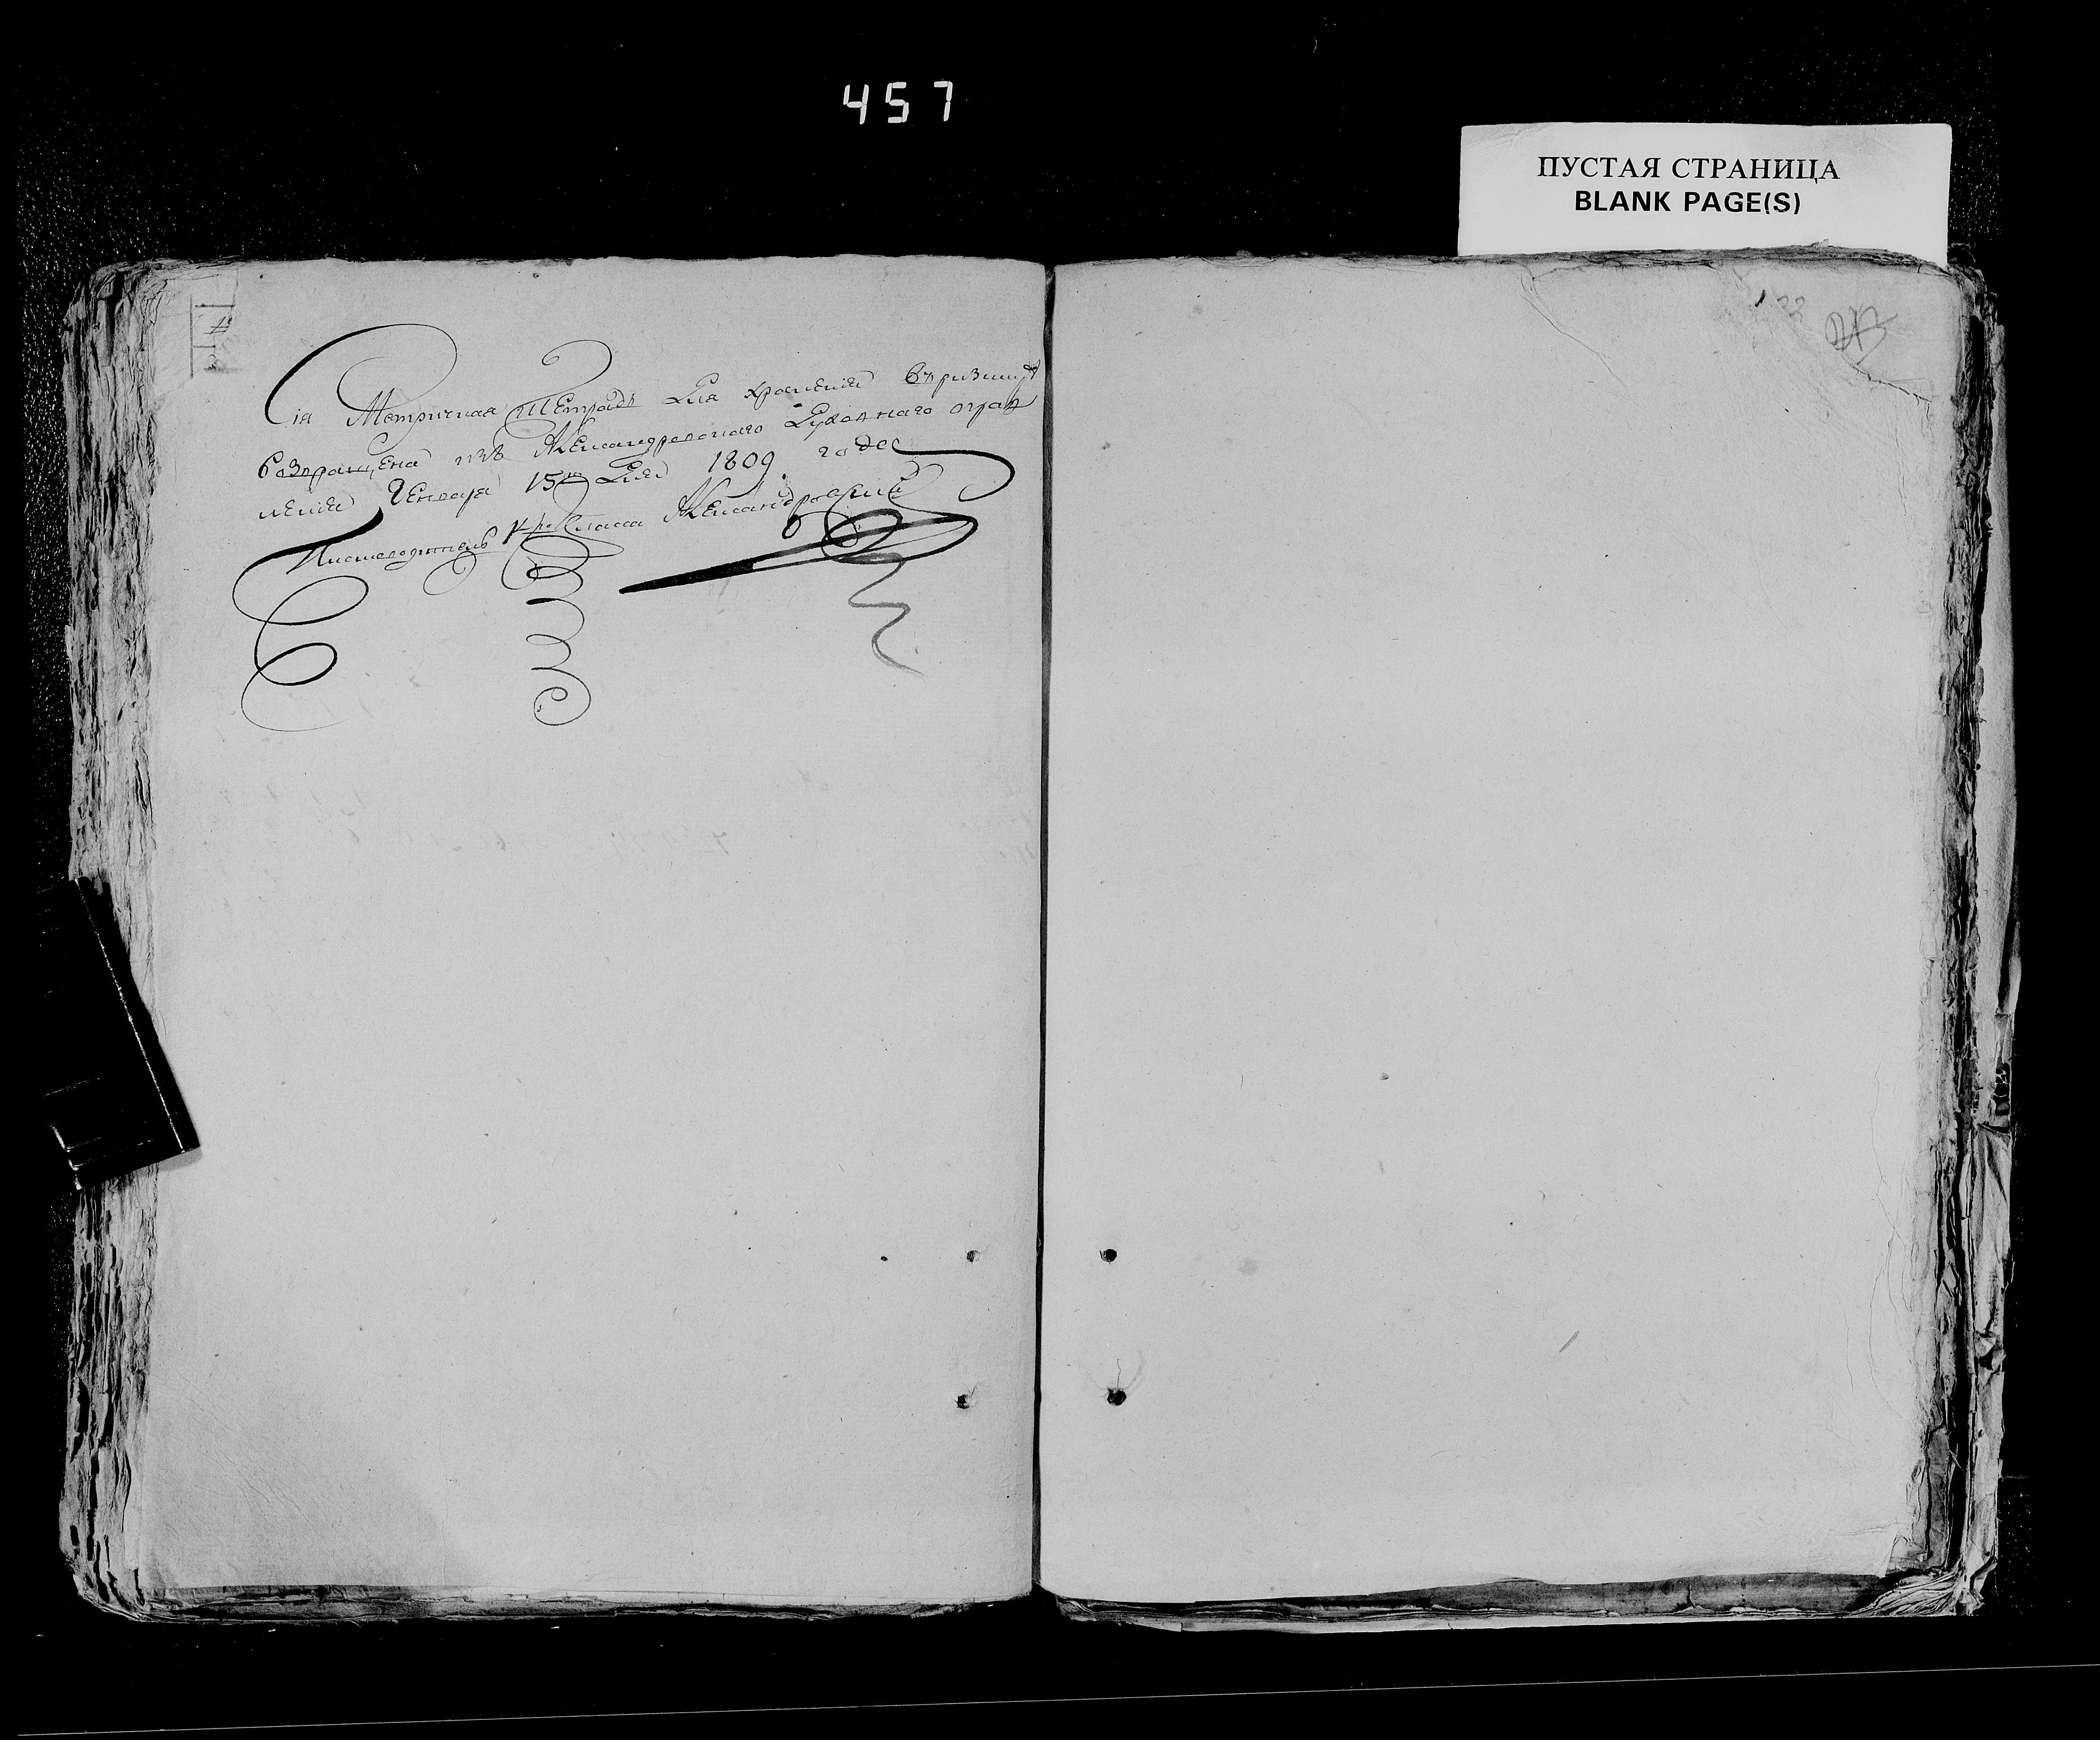 457
ПУСТАЯ СТРАНИЦА
BLANK PAGE(S)
Сія Метричная Тетрадь для храненія въ ризницѣ
возвращена изъ Александровскаго Духовнаго прав
ленія Генваря 15го дня 1809 года
14го Класса Александровскій